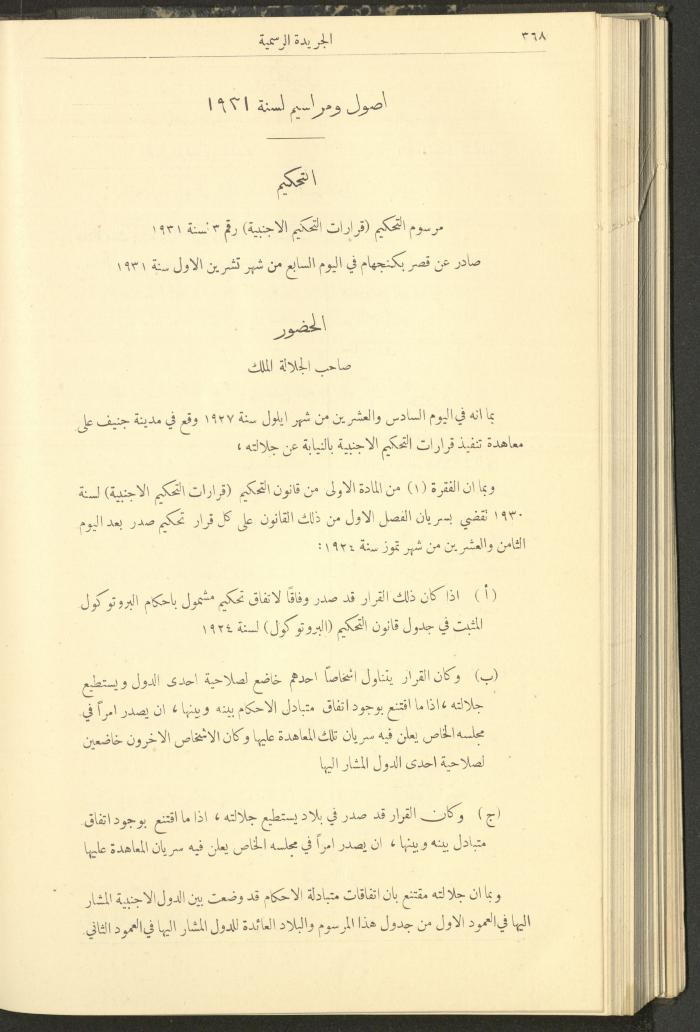 ٣٦٨
الجريدة الرسمية
اصول ومراسيم لسنة ١٩٣١
التحكيم
مرسوم التحكيم (قرارات التحكيم الاجنبية) رقم ٣ لسنة ١٩٣١
صادر عن قصر بكنجهام في اليوم السابع من شهر تشرين الاول سنة ١٩٣١
الحضور
صاحب الجلالة الملك
بما انه في اليوم السادس والعشرين من شهر ايلول سنة ١٩٢٧ وقع في مدينة جنيف على
معاهدة تنفيذ قرارات التحكيم الاجنبية بالنيابة عن جلالته ،
وبما ان الفقرة (١) من المادة الاولى من قانون التحكيم (قرارات التحكيم الاجنبية) لسنة
١٩٣٠ نقضي بسريان الفصل الاول من ذلك القانون على كل قرار تحكيم صدر بعد اليوم
الثامن والعشرين من شهر تموز سنة ١٩٢٤:
(أ) اذا كان ذلك القرار قد صدر وفاقًا لاتفاق تحكيم مشمول باحكام البروتوكول
المثبت في جدول قانون التحكيم (البروتوكول) لسنة ١٩٢٤
(ب) وكان القرار يتناول اشخاصًا احدهم خاضع لصلاحية احدى الدول ويستطيع
جلالته ، اذا ما اقتنع بوجود اتفاق متبادل الاحكام بينه وبينها ، ان يصدر امرًا في
مجلسه الخاص يعلن فيه سريان تلك المعاهدة عليها وكان الاشخاص الاخرون خاضعين
لصلاحية احدى الدول المشار اليها
(ج) وكان القرار قد صدر في بلاد يستطيع جلالته ، اذا ما اقتنع بوجود اتفاق
متبادل بينه وبينها ، ان يصدر امرًا في مجلسه الخاص يعلن فيه سريان المعاهدة عليها
وبما ان جلالته مقتنع بان اتفاقات متبادلة الاحكام قد وضعت بين الدول الاجنبية المشار
اليها في العمود الاول من جدول هذا المرسوم والبلاد العائدة للدول المشار اليها في العمود الثاني